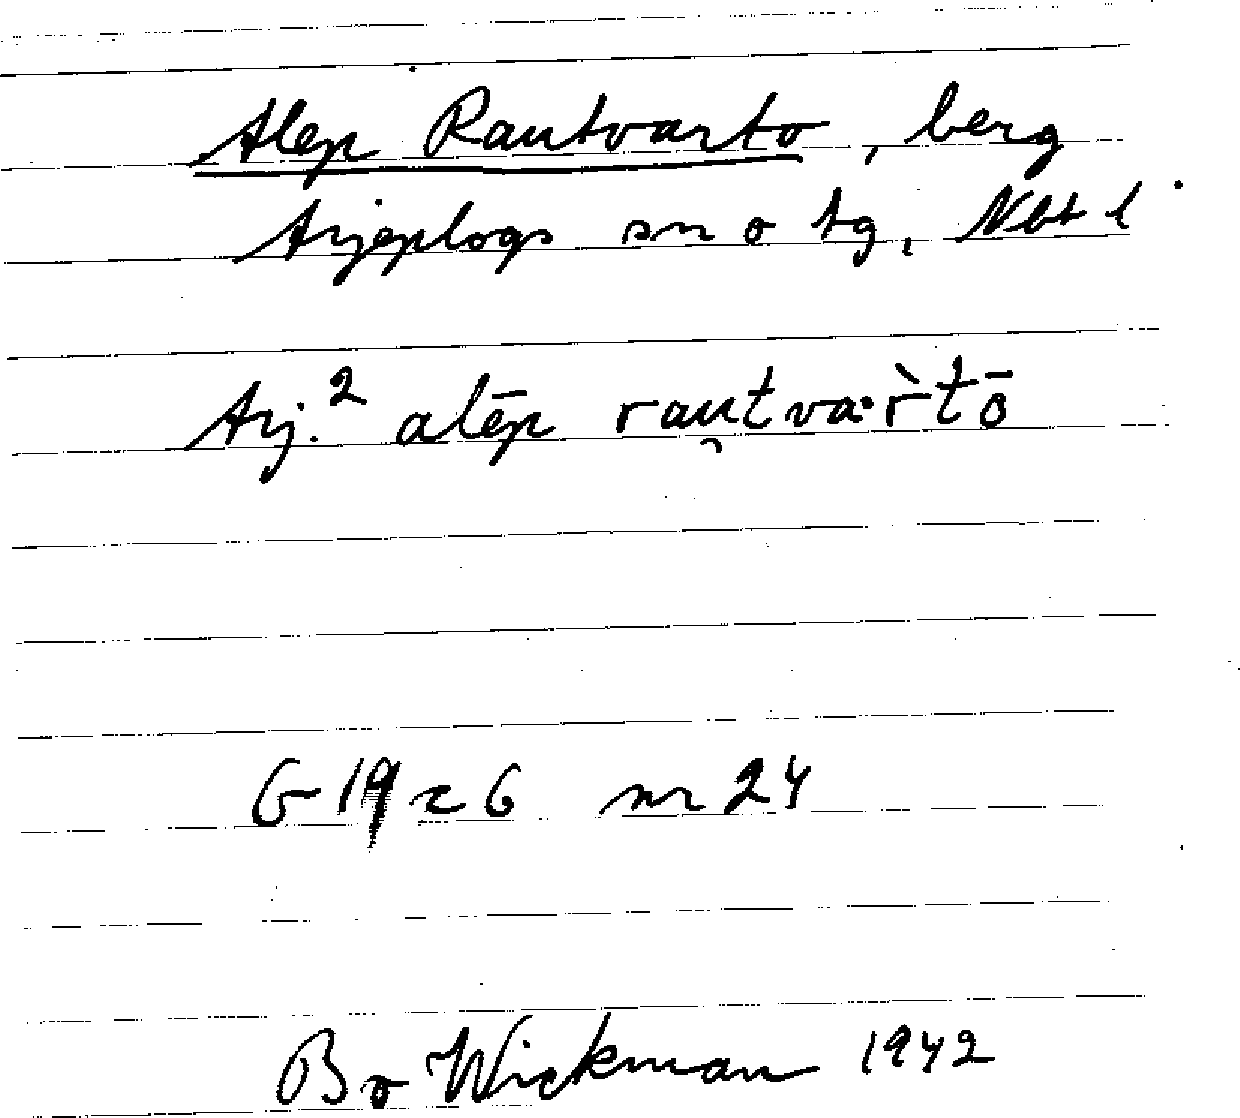 Alep Rautvarto, berg
Arjeplogs sn o tg, Nbt l
Arj.² alēp rau̯tvàr̀tō
G 19 c 6 nr 24
Bo Wickman 1942